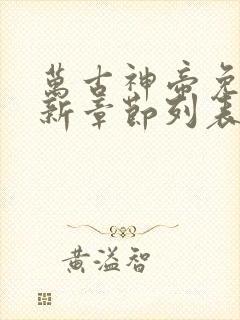 萬古神帝免
新章節列表
黃溢智